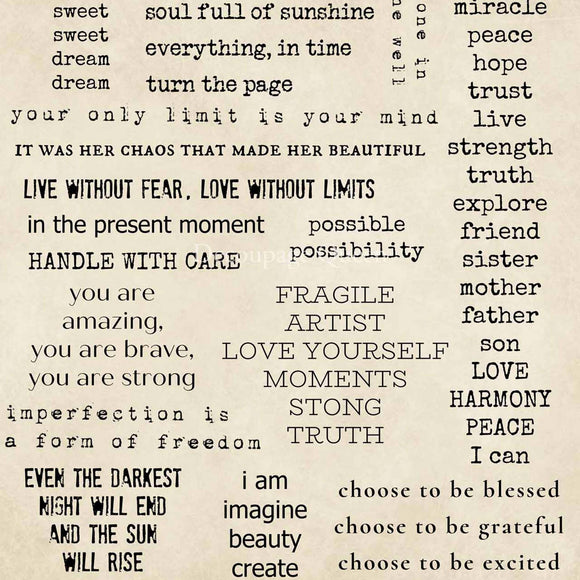 sweet
sweet
dream
dream
soul full of sunshine
everything, in time
turn the page
one in
e well
your only limit is your mind
IT WAS HER CHAOS THAT MADE HER BEAUTIFUL
LIVE WITHOUT FEAR, LOVE WITHOUT LIMITS
in the present moment
HANDLE WITH CARE
possible
possibility
you are
amazing,
you are brave,
you are strong
FRAGILE
ARTIST
LOVE YOURSELF
MOMENTS
STONG
TRUTH
imperfection is
a form of freedom
EVEN THE DARKEST
NIGHT WILL END
AND THE SUN
WILL RISE
i am
imagine
beauty
create
miracle
peace
hope
trust
live
strength
truth
explore
friend
sister
mother
father
son
LOVE
HARMONY
PEACE
I can
choose to be blessed
choose to be grateful
choose to be excited